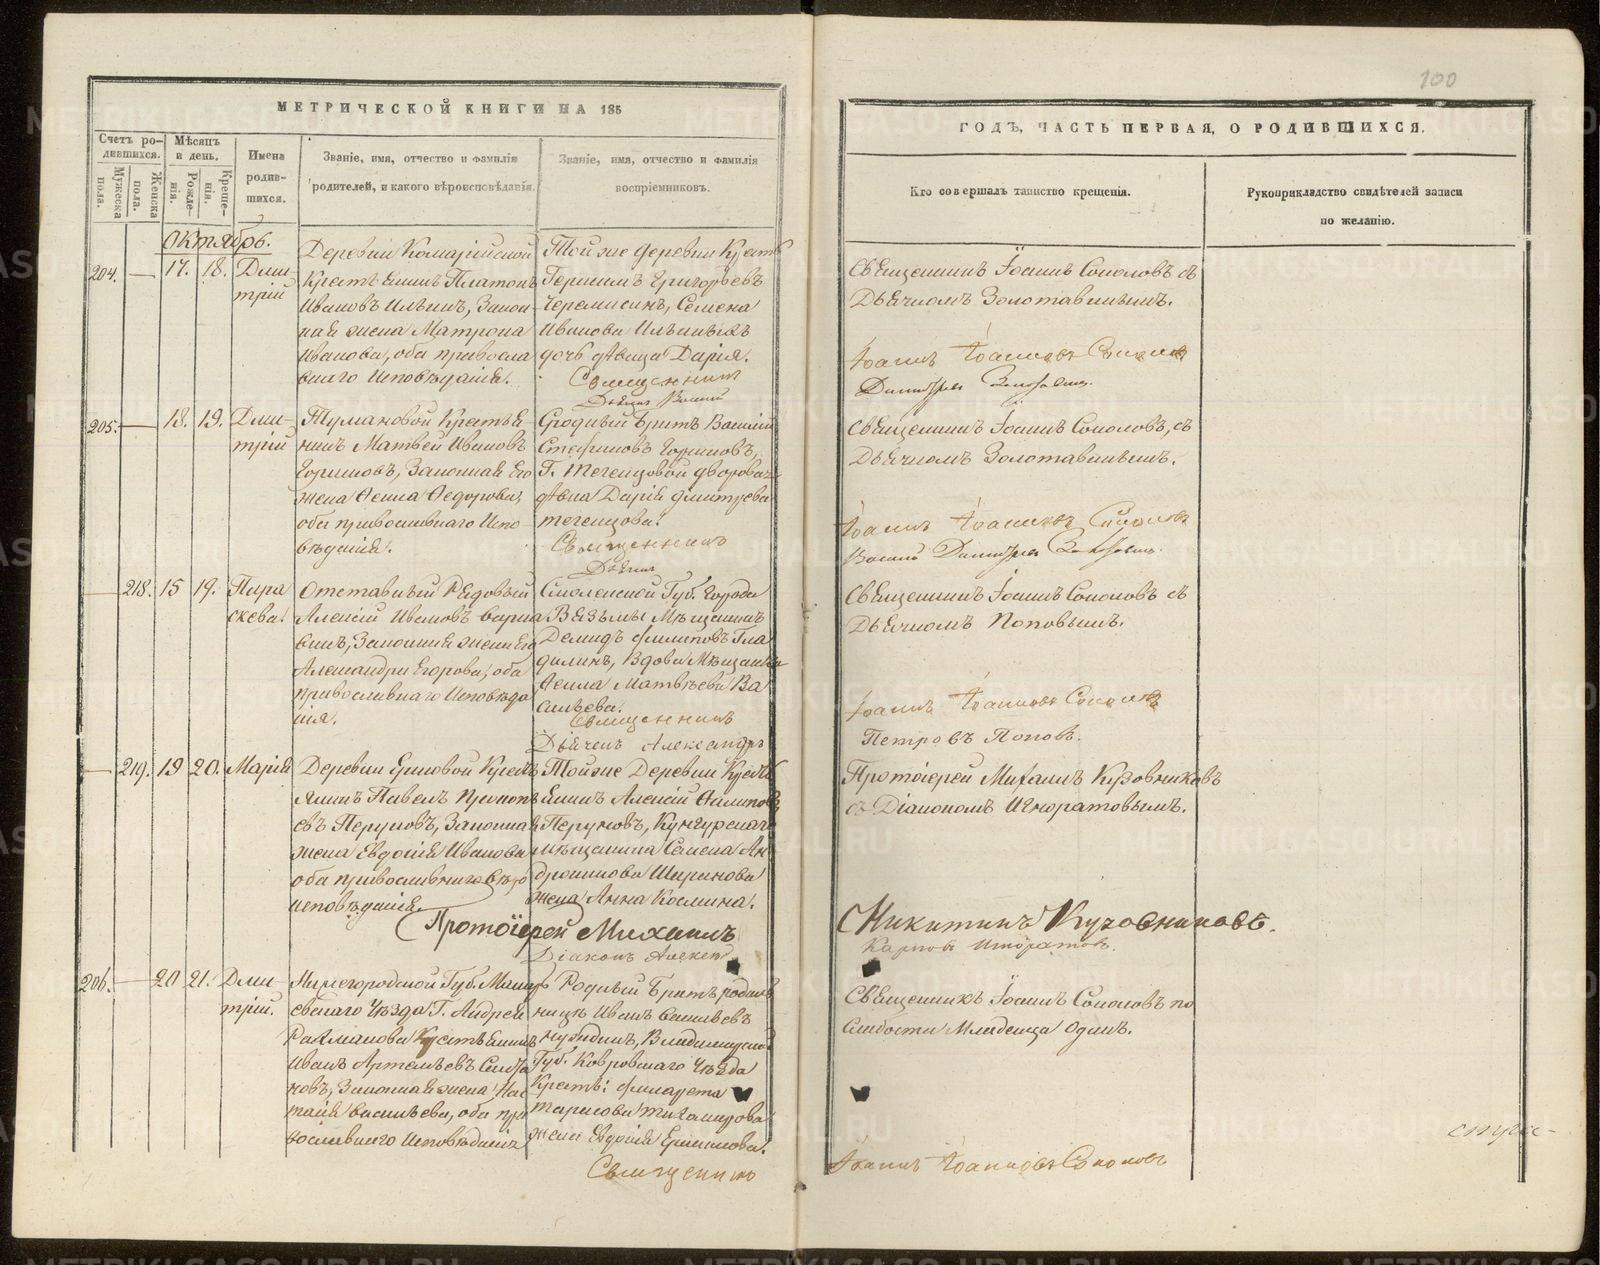 100
МЕТРИЧЕСКОЙ КНИГИ НА 185
ГОДЪ, ЧАСТЬ ПЕРВАЯ, О РОДИВШИХСЯ.
Счетъ ро-
дившихся.
Мужеска
пола.
Женска
пола.
Мѣсяцъ
и день.
Рожде-
нія.
Креще-
нія.
Имена
родив-
шихся.
Званіе, имя, отчество и фамилія
родителей, и какого вѣроисповѣданія.
Званіе, имя, отчество и фамилія
воспріемниковъ.
Кто совершалъ таинство крещенія.
Рукоприкладство свидѣтелей записи
по желанію.
Октябрь.
204. — 17. 18. Дми-
трій
Деревни
Крестьянинъ Платонъ
Ивановъ Ильинъ, Закон-
ная жена Матрона
Иванова, оба правосла
внаго исповѣданія.
Тойже деревни Крест
Григорьевъ
Черемисинъ, Семена
Иванова Ильиныхъ
дочь дѣвица Дарія.
Священникъ
Священникъ Іоаннъ Соколовъ съ
Дьячкомъ Золотавинымъ.
Іоаннъ Іоанновъ Соколовъ
205. — 18. 19. Дми-
трій
Тумановой Крестья-
нинъ Матвей Ивановъ
Горшковъ, Законная Его
жена Анна Федорова,
оба православнаго Испо
вѣданія.
Сродный Братъ Василій
Горшковъ,
дѣвка Дарія Дмитрева
Священникъ
Священникъ Іоаннъ Соколовъ, съ
Дьячкомъ Золотавинымъ.
Іоаннъ Іоанновъ Соколовъ
— 218. 15 19. Пара
скева.
Отставный Рядовый
Алексій Ивановъ
Законная жена Его
Александра Егорова, оба
православнаго Исповѣда
нія.
Смоленской Губ. Города
Вязьмы Мѣщанинъ
Демидъ Филиповъ Гла
дилинъ, Вдова Мѣщанка
Матвѣева Ва
сильева.
Священникъ
Дьячекъ Александръ
Священникъ Іоаннъ Соколовъ съ
Дьячкомъ Поповымъ.
Іоаннъ Іоанновъ Соколовъ
Петровъ Поповъ.
— 219. 19 20. Марія
Деревни Крест
янинъ Павелъ Прокопь
евъ Перуновъ, Законная
жена Евдокія Иванова
оба православнаго
исповѣданія.
Тойже Деревни Крест
янинъ Алексій
Перуновъ, Кунгурскаго
мѣщанина Семена Ан
дроникова Ширинова
жена Анна Космина.
Протоіерей Михаилъ
Діаконъ Алекси
Протоіерей Михаилъ Кузовниковъ
съ Діакономъ Игноратовымъ.
Никитинъ Кузовниковъ.
Карповъ Игноратовъ.
206. — 20 21. Дми-
трій.
Нижегородской Губ.
Уѣзда Г. Андрея
Рахманова Крестьянинъ
Иванъ Артемьевъ
новъ, Законная жена Нас
тасія Васильева, оба пра
вославнаго Исповѣданія
Родный Братъ
Иванъ Васильевъ
Владимирской
Губ. Ковровскаго Уѣзда
Крестья: Филарета
Тарасова Тихомирова
жена Евдокія Ермилова.
Священникъ
Священникъ Іоаннъ Соколовъ по
слабости Младенца одинъ.
Іоаннъ Іоанновъ Соколовъ